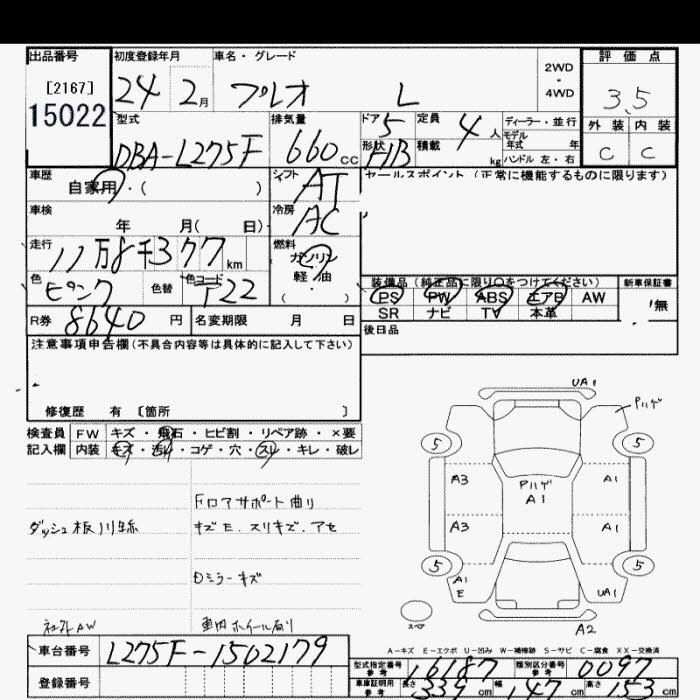 出品番号 初度登録年月 車名・グレード 評価点
[2167] 24 2月 プレオ L 2WD・4WD 3.5
15022
型式 排気量 ドア 5 定員 4人 ディーラー・並行 外装 内装
DBA-L275F 660cc 形状 H/B 積載 kg モデル年式 年 ハンドル 左・右 C C
車歴 自家用・( ) シフト AT セールスポイント (正常に機能するものに限ります)
車検 年 月( 日) 冷房 AC
走行 11万8千377km 燃料 ガソリン 軽・油 ( )
色 ピンク 色替 色コード T22 装備品 (純正品に限り○をつけてください) 新車保証書
PS PW ABS エアB AW 無
R券 8640円 名変期限 月 日 SR ナビ TV 本革
後日品
注意事項申告欄(不具合内容等は具体的に記入して下さい)
修復歴 有 [箇所 ]
検査員 FW キズ・飛石・ヒビ割・リペア跡・×要
記入欄 内装 キズ・汚れ・コゲ・穴・スレ・キレ・破レ
UA1
Pハゲ
5 5
A3 Pハゲ A1 A1
A3 A1
5 5
A1 E UA1
スペア A2
Fロアサポート曲り
ダッシュ板 キズE.スリキズ.アセ
Dミラーキズ
社外AW 車内ホイール有り
A-キズ E-エクボ U-凹み W-補修跡 S-サビ C-腐食 XX-交換済
車台番号 L275F-1502179
型式指定番号 参考 16187 類別区分番号 参考 0097
登録番号
車庫証明用 参考 長さ 339cm 幅 147cm 高さ 153cm